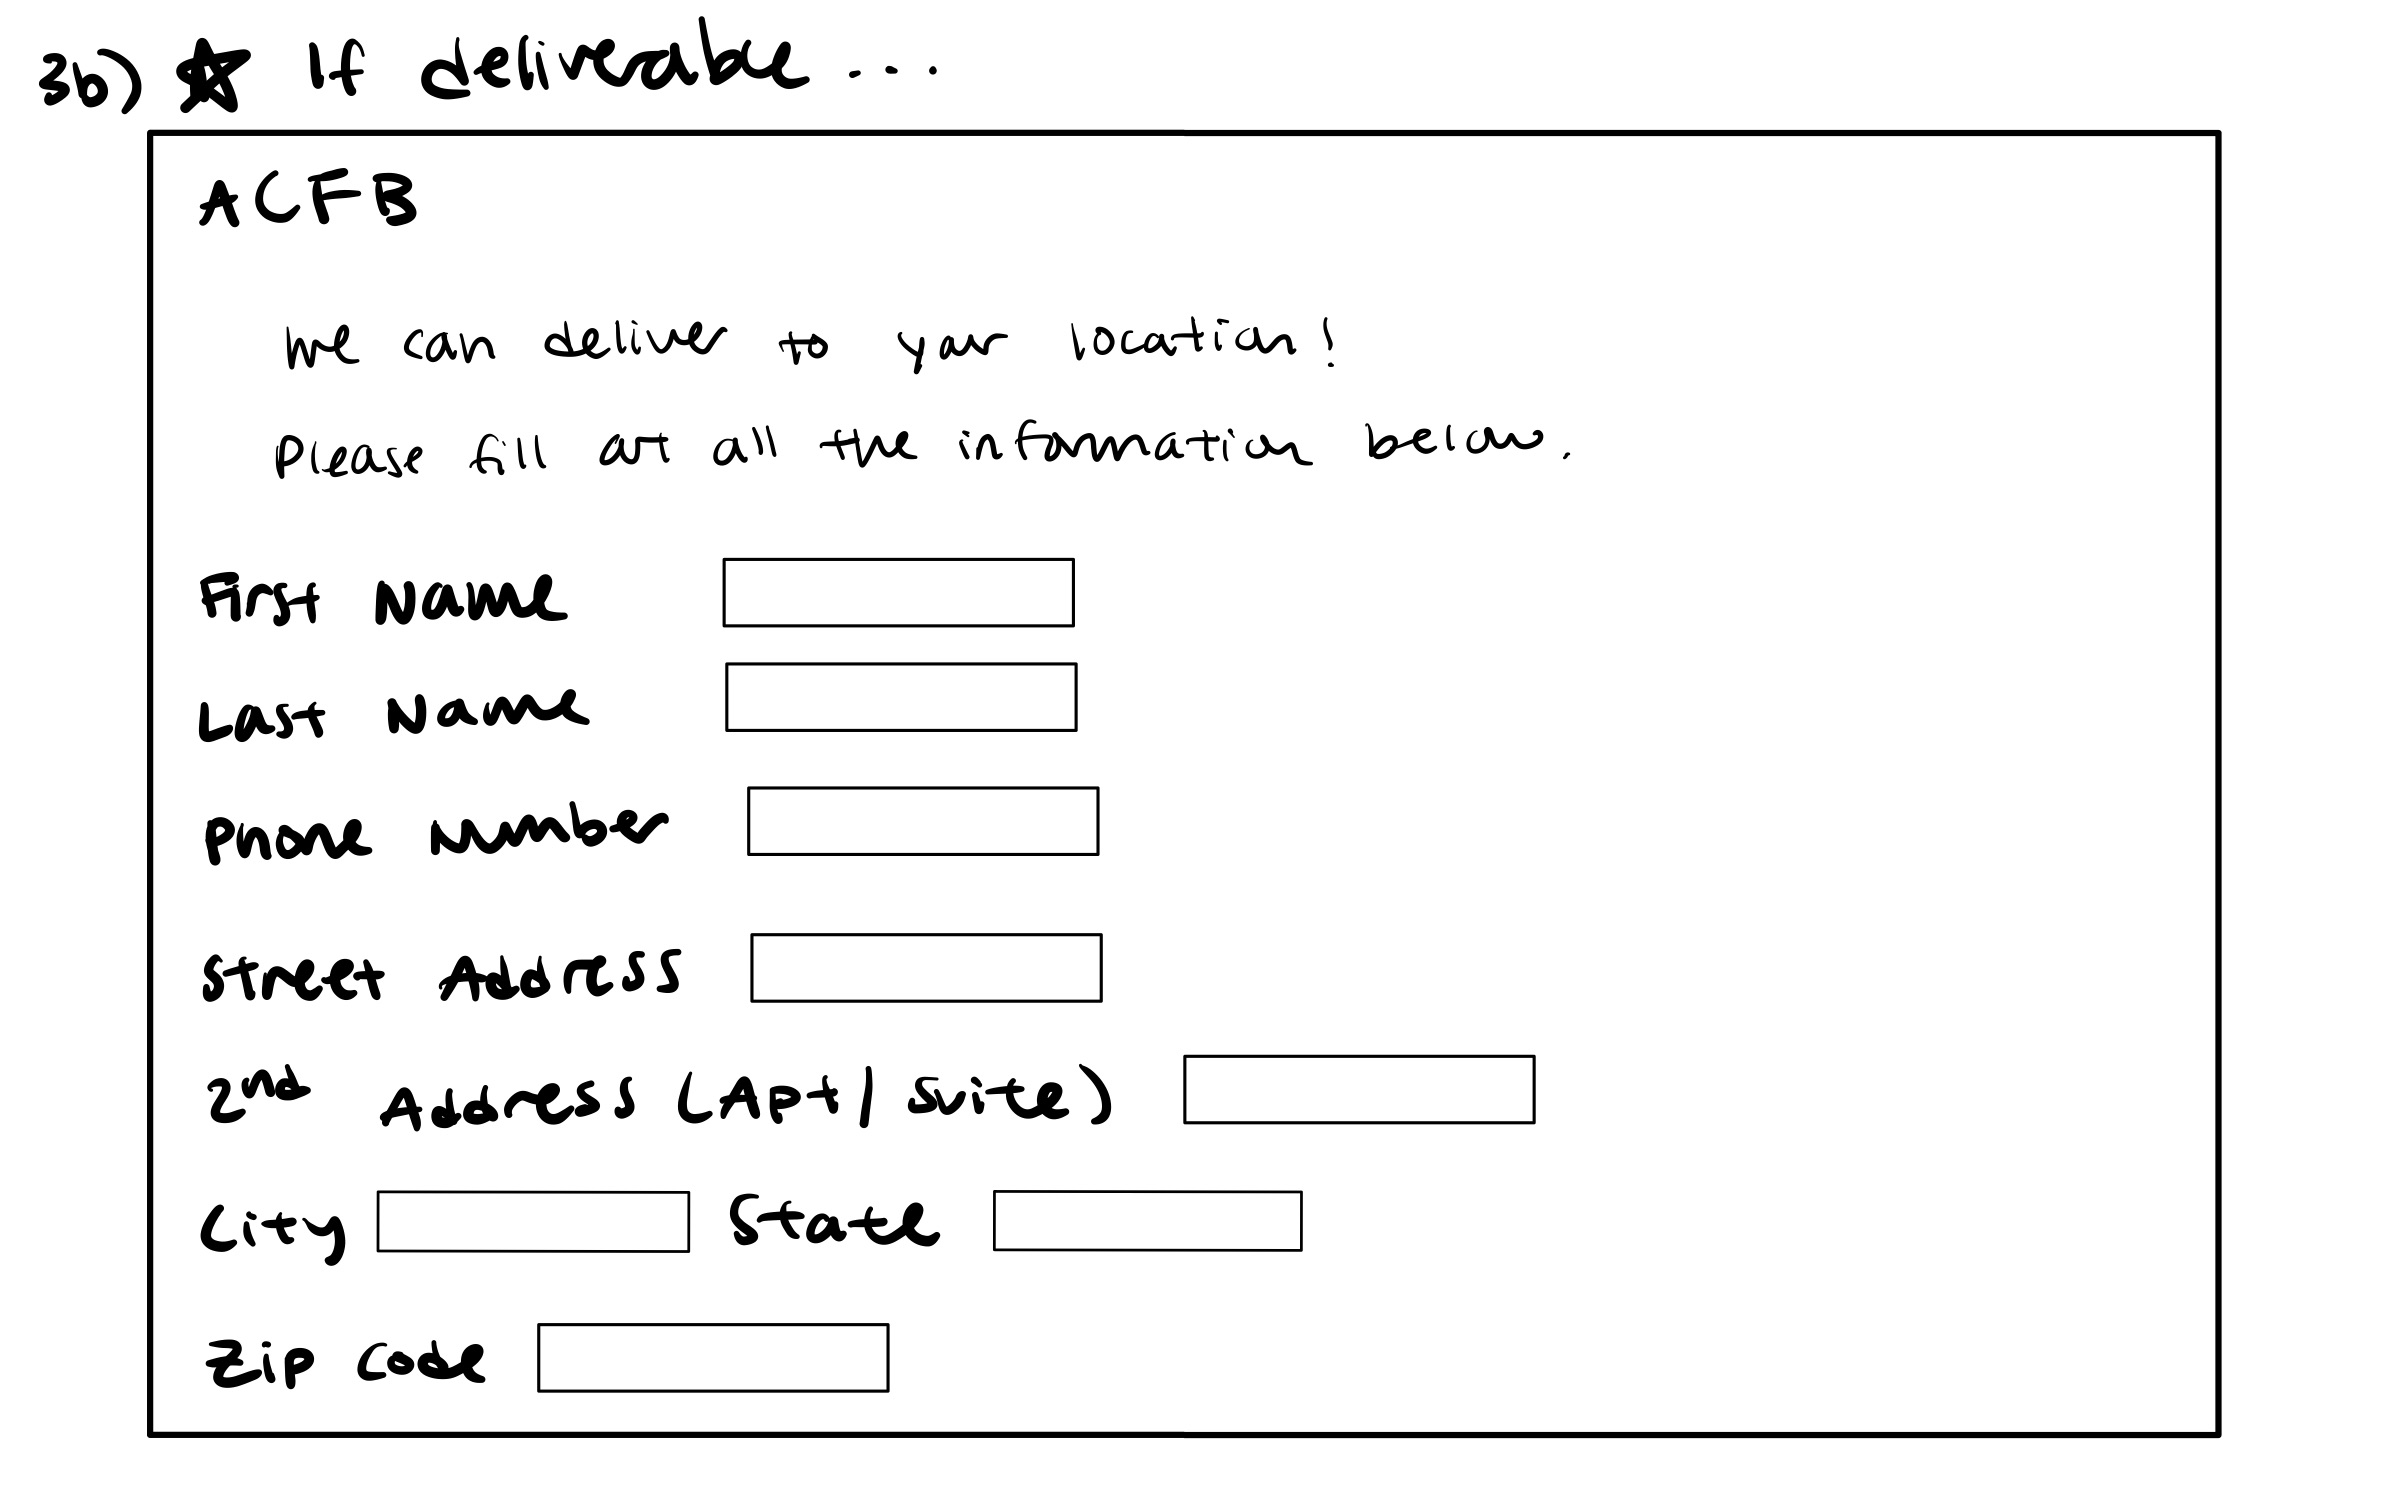 3b) ☆ If deliverable ...
ACFB
We can deliver to your location!
Please fill out all the information below.
First Name
Last Name
Phone Number
Street Address
2nd Address (Apt / Suite)
City State
Zip Code